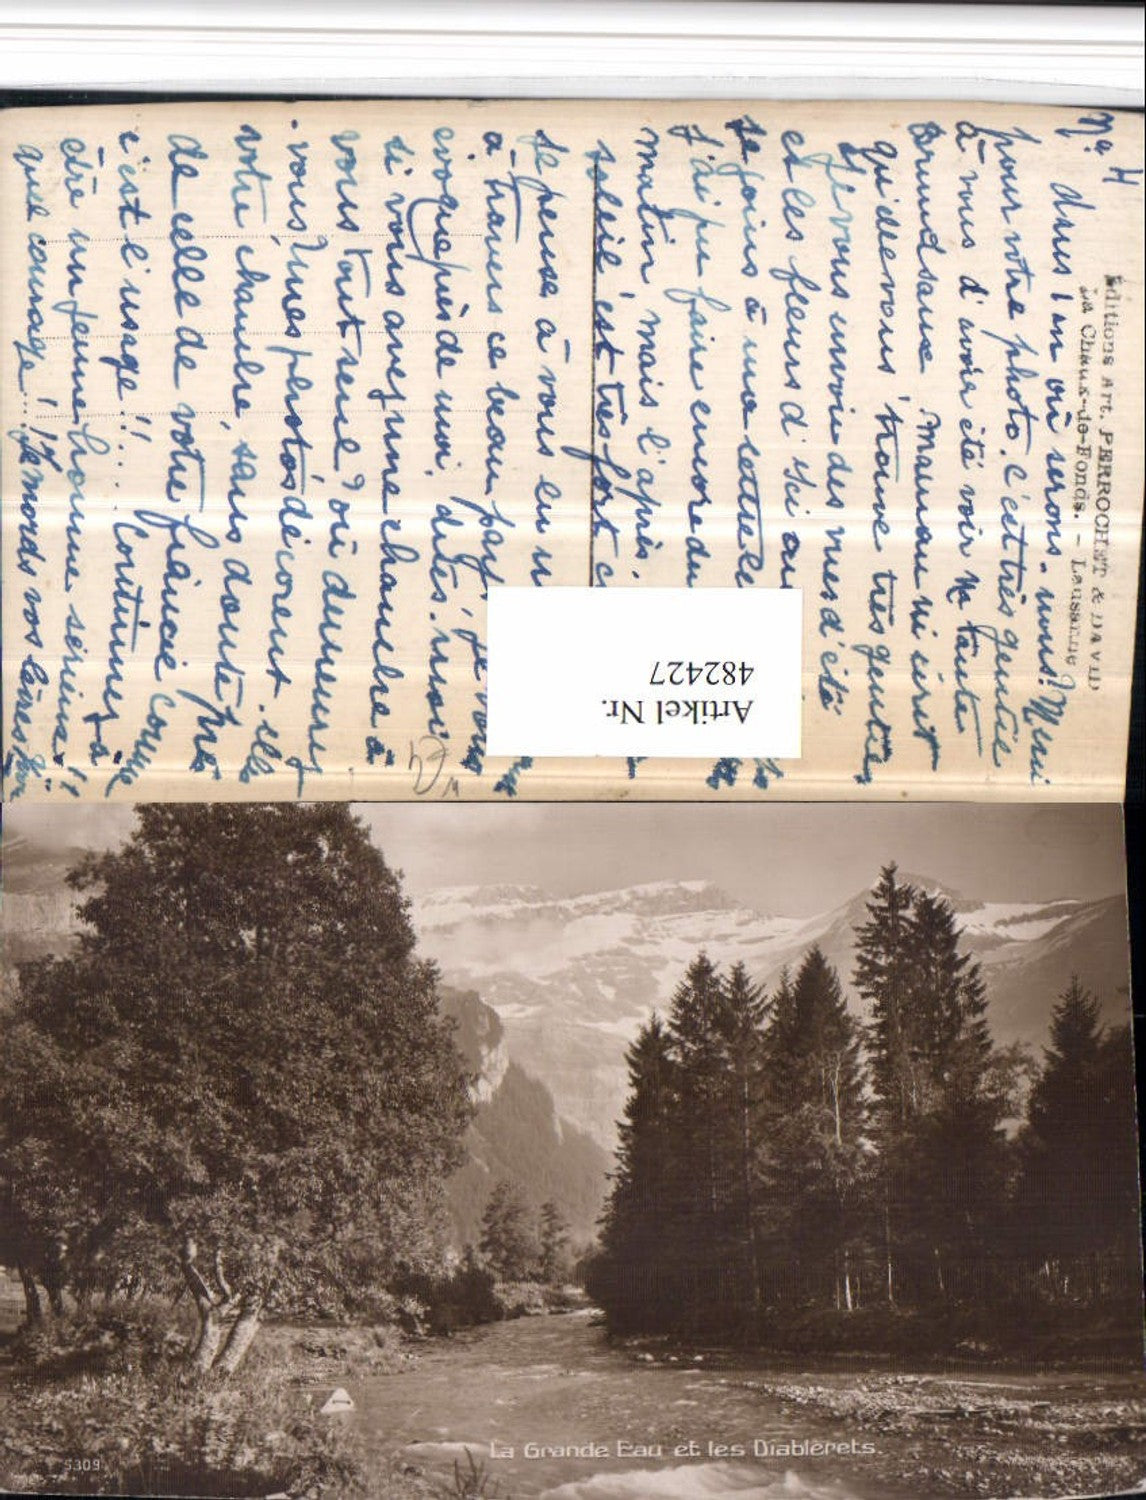 No 4
Editions Art. PERROCHET & DAVID
La Chaux-de-Fonds. - Lausanne
dans 1 an où serons-nous? Merci
pour votre photo. c'est très gentil
à vous d'avoir été voir Me Tante
Maman m'écrit
qu'elle vous trouve très gentille,
Je vous envoie des vues d'été
et les fleurs d'ici
Je joins à ma lettre
J'ai pu faire encore du
matin, mais l'après.
soleil est très fort
Je pense à vous
à travers ce beau pays, je vous
évoque près de moi. dites-moi
si vous avez une chambre à
vous tout seul? où demeurez
-vous? mes photos décorent-elles
votre chambre, sans doute près
de celle de votre fiancée comme
c'est l'usage!!... Continuez à
être un jeune homme sérieux!!
quel courage!! Je mords vos lèvres
Artikel Nr.
482427
La Grande Eau et les Diablerets.
5309